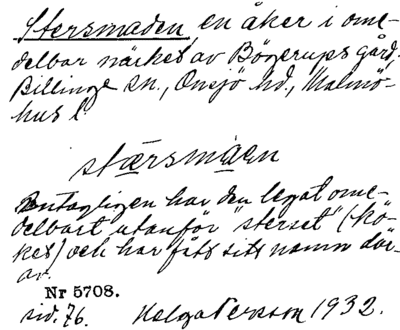 Stersmaden, en åker i ome-
delbar närhet av Bögerups gård,
Billinge sn., Onsjö hd., Malmö-
hus l.
stærsmaen
Antagligen har den legat ome-
delbart utanför "sterset" (kö-
ket) och har fått sitt namn där-
av.
Nr 5708.
sid. 76. Helga Persson 1932.